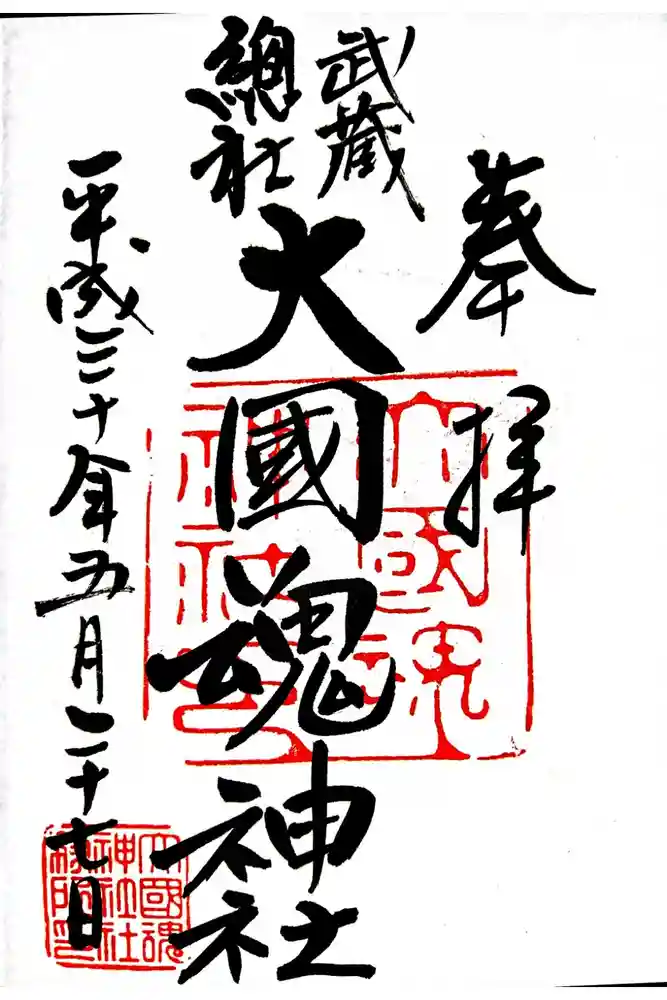 奉拝
武蔵
總社
大國魂神社
平成三十年五月二十七日
大國魂
神社
大國魂
神社社